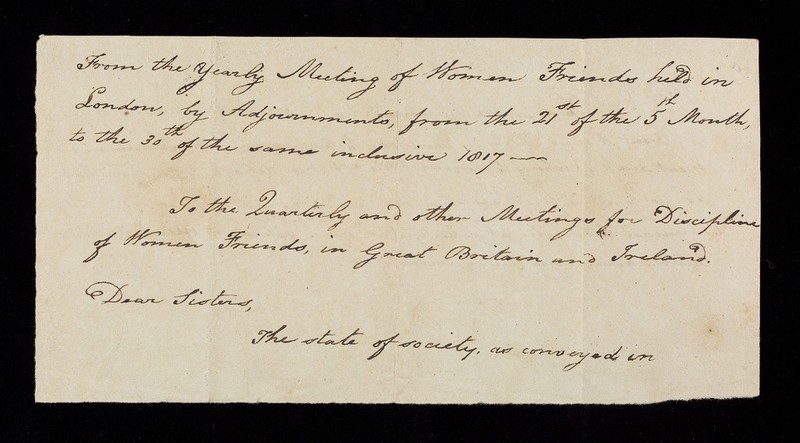 From the Yearly Meeting of Women Friends held in
London, by Adjournments, from the 21st of the 5th Month,
to the 30th of the same inclusive 1817 —
To the Quarterly and other Meetings for Discipline
of Women Friends, in Great Britain and Ireland.
Dear Sisters,
The state of society, as conveyed in